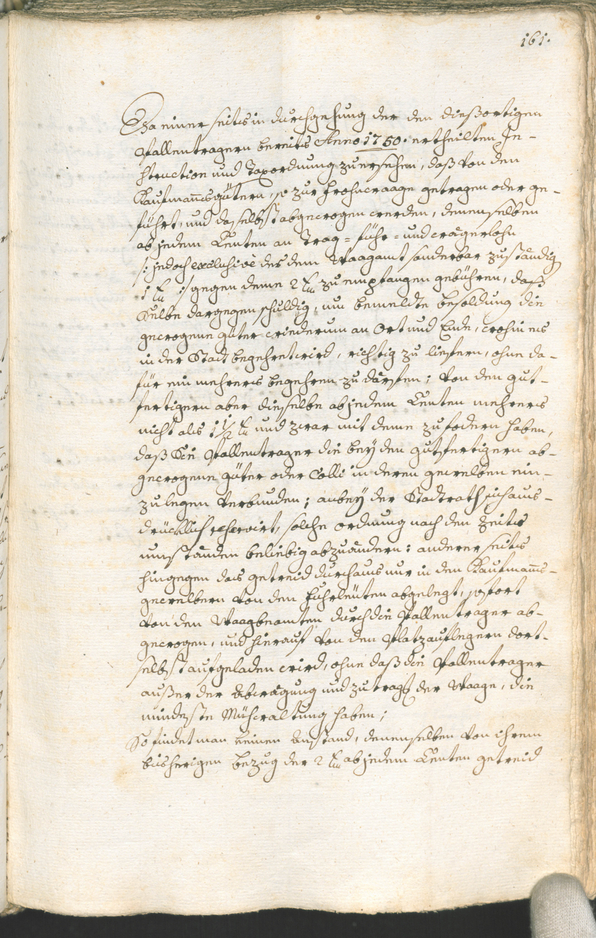 161.
Da einer seits in durchgehung der den diesortigen
Ballentragern bereits Anno 1750. ertheilten In-
struction und Taxordnung zu ersehen, daß von den
Kaufmannsgütern, so zur Frohnwaage getragen oder ge-
führt, und daselbst abgewogen werden, denenselben
ab jedem Centen an Trag- führ- und wägerlohn
/: jedoch exclusive des dem Waagamt sonderbar zuständig
1 xr :/ gegen deme 2 xr zu empfangen gebühren, daß
Selbe dargegen schuldig, um bemelte besoldung die
gewogene güter wiederum an Ort und Ende, wohin es
in der Stadt begehret wird, richtig zu liefern, ohne da-
für ein mehrers begehren zu därfen; von den gut-
fertigern aber dieselbe ab jedem Centen mehrers
nicht als 1½ xr und zwar mit deme zu fodern haben,
daß die Ballentrager die bey den gutfertigern ab-
gewogene güter oder Colli in deren gewelben ein-
zulegen verbunden; anbey der Stadtrath sich aus-
drücklich reserviert, solche ordnung nach den Zeits
umständen beliebig abzuändern: anderer seits
hingegen das getreid durchaus nur in den Kaufmanns-
gewelbern von den Fuhrleuten abgelegt, sofort
von den Waagbeamten durch die Ballentrager ab-
gewogen, und hierauf von den Platzauflegern dort-
selbst aufgeladen wird, ohne daß die Ballentrager
außer der Abwägung und zutrag der Waage, die
mindeste Mühewaltung haben;
So findet man keinen Anstand, denenselben von ihrem
bisherigen bezug der 2 xr ab jedem Centen getreid